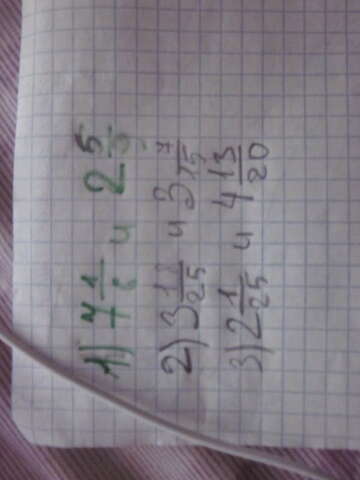 1) 7 1/6 и 2 5/9
2) 3 /25 и 3 7/15
3) 2 1/25 и 4 13/20